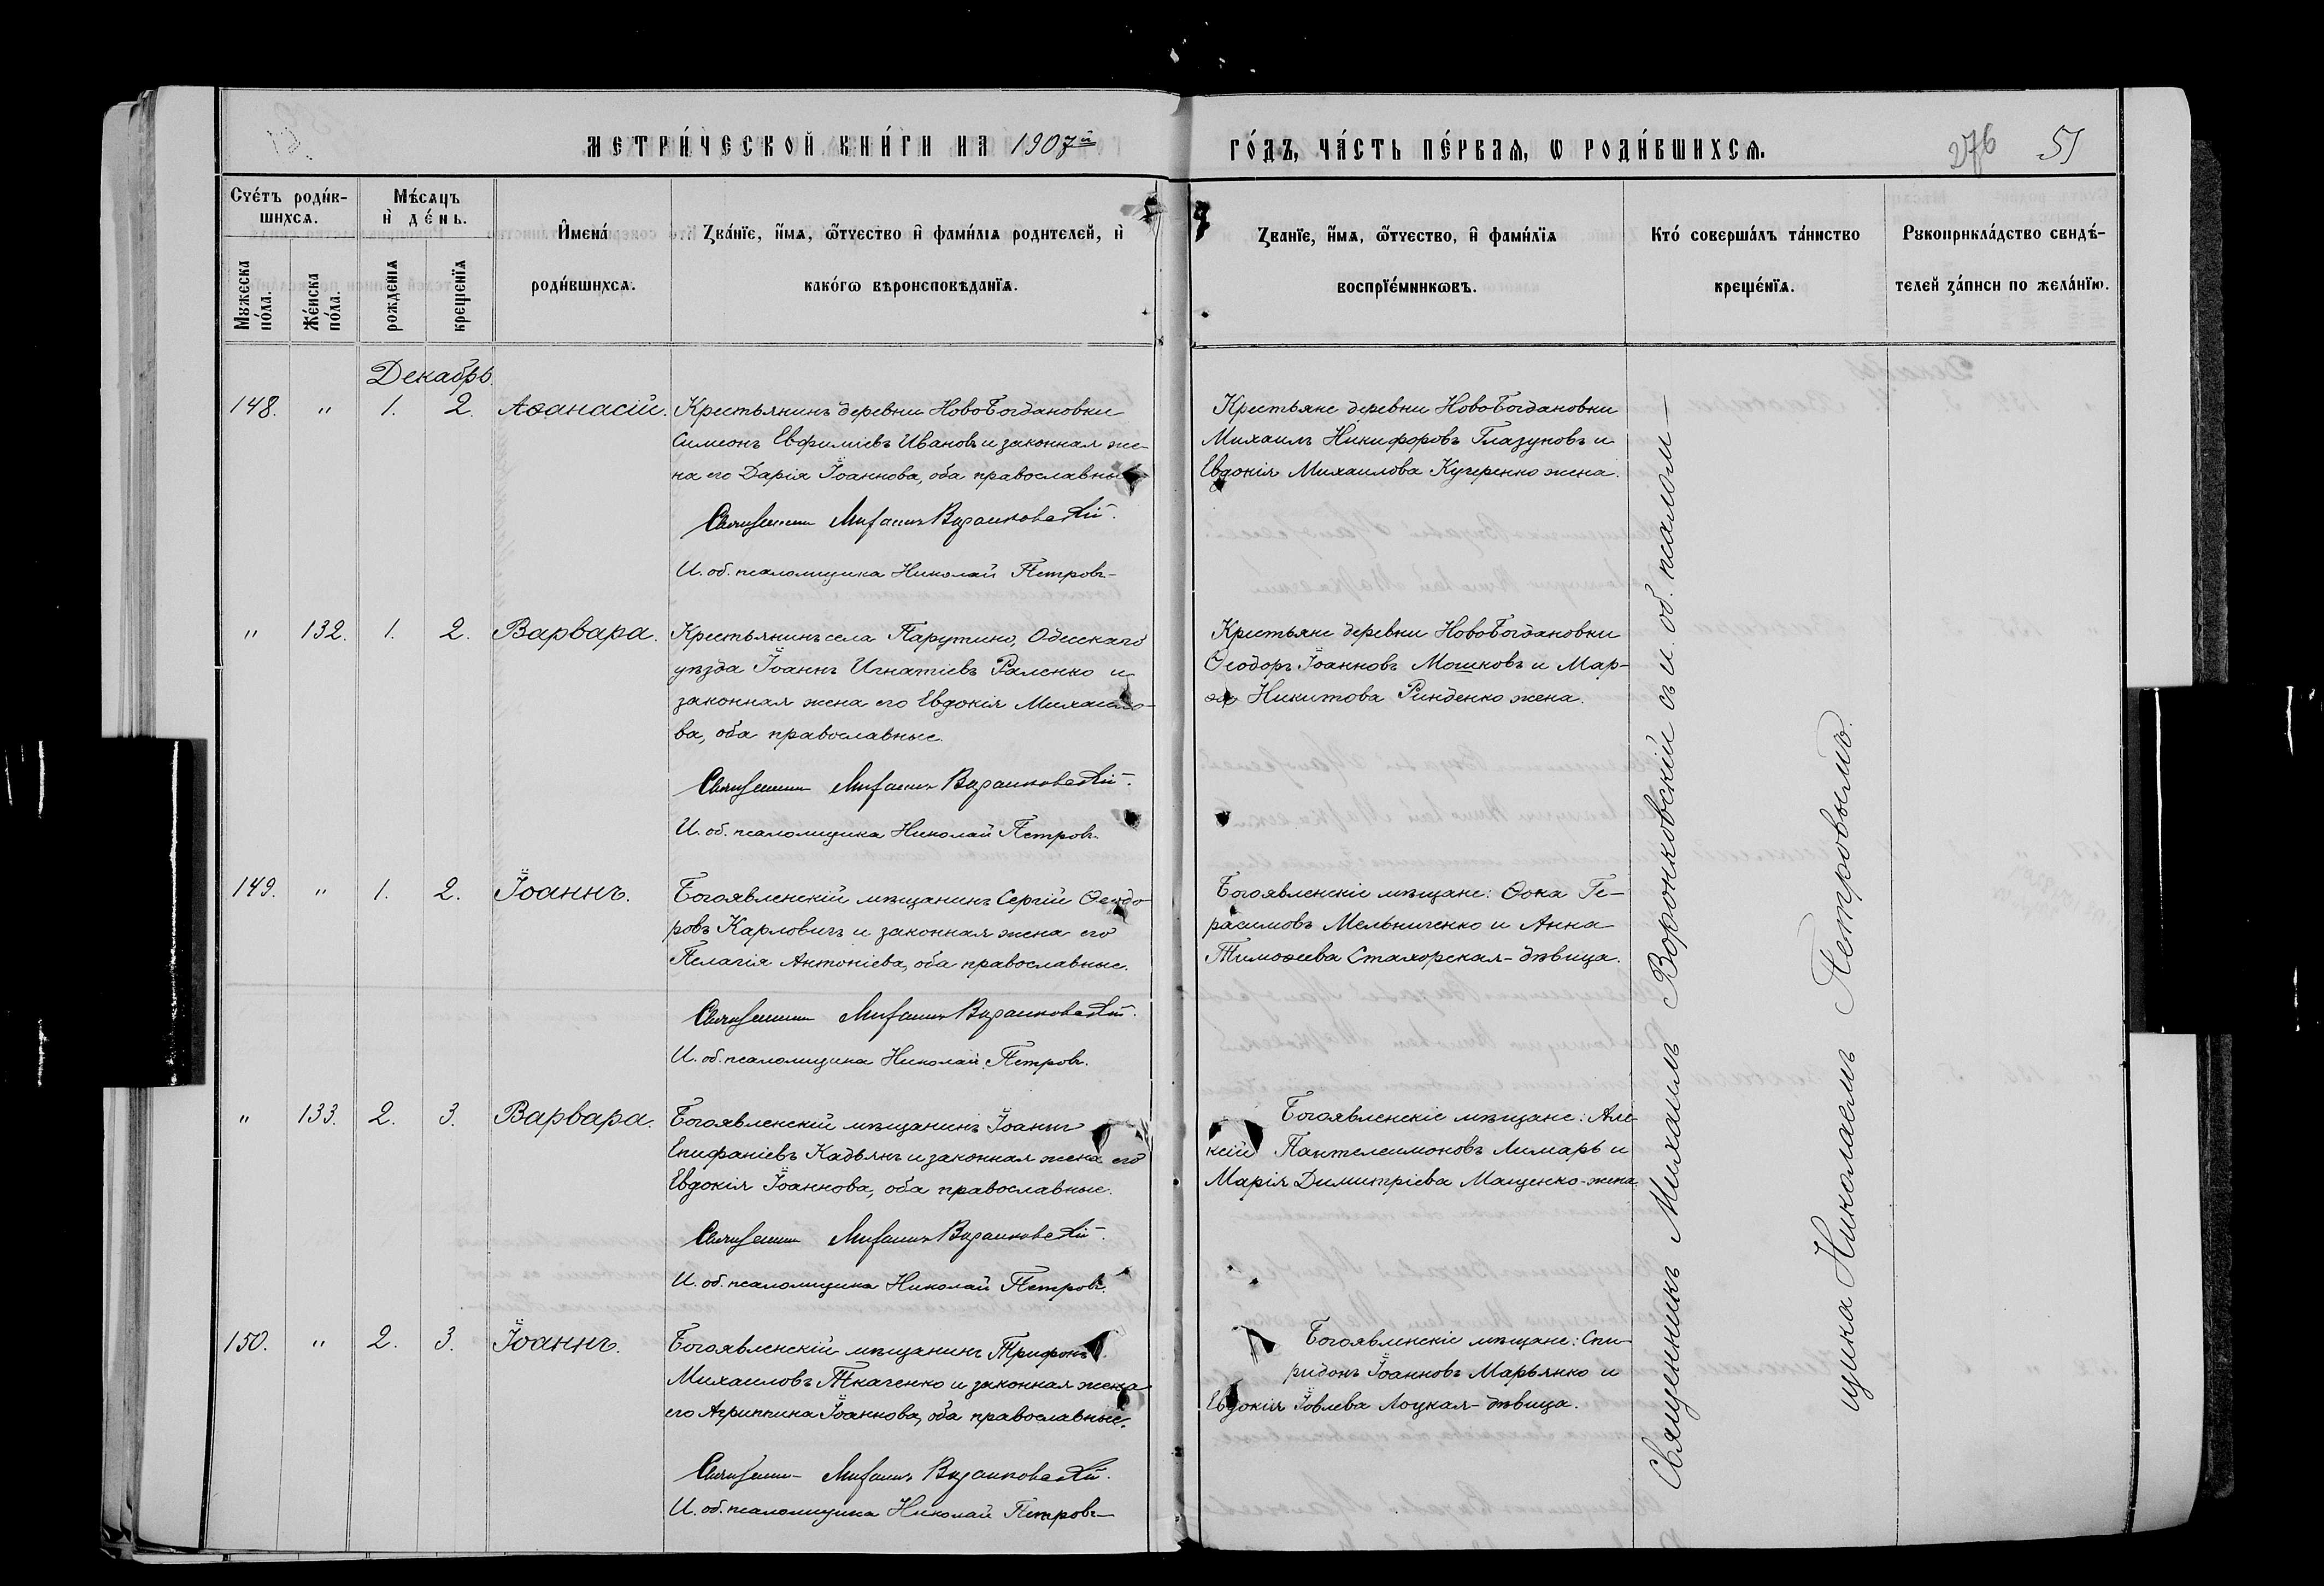 МЕТРИ́ЧЕСКОЙ КНИ́ГИ НА 1907й
ГО́ДЪ, ЧА́СТЬ ПЕ́РВАѦ, Ѡ РОДИ́ВШИХСѦ.
276 51
Сче́тъ роди́в-
шихсѧ.
Мѣ́сѧцъ
и҆ де́нь.
Мꙋжеска
по́ла.
Же́нска
по́ла.
рожденїѧ
крещенїѧ
И҆мена́
роди́вшихсѧ.
Зва́нїе, и҆́мѧ, ѻ҆́тчество и҆ фами́лїѧ родителей, и҆
како́гѡ вѣроисповѣ́данїѧ.
Званїе, и҆́мѧ, ѻ҆́тчество, и҆ фами́лїѧ
воспрїе́мникѡвъ.
Кто́ соверша́лъ та́инство
креще́нїѧ.
Рꙋкоприкла́дство свидѣ́-
телей за́писи по жела́нїю.
Декабрь.
148. " 1. 2. Аѳанасій.
Крестьянинъ деревни НовоБогдановки
Симеонъ Евфиміевъ Ивановъ и законная же-
на его Дарія Іоаннова, оба православные
Священникъ Михаилъ Воронковскій.
И. об. псаломщика Николай Петровъ
Крестьяне деревни НовоБогдановки
Михаилъ Никифоровъ Глазуновъ и
Евдокія Михаилова Кучеренко жена.
" 132. 1. 2. Варвара.
Крестьянинъ села Парутино, Одесскаго
уѣзда Іоаннъ Игнатіевъ Раленко и
законная жена его Евдокія Михаило-
ва, оба православные.
Священникъ Михаилъ Воронковскій.
И. об. псаломщика Николай Петровъ.
Крестьяне деревни НовоБогдановки
Ѳеодоръ Іоанновъ Мошковъ и Мар-
Никитова Ринденко жена.
149. " 1. 2. Іоаннъ.
Богоявленскій мѣщанинъ Сергій Ѳеодо
ровъ Карловичъ и законная жена его
Пелагія Антоніева, оба православные.
Священникъ Михаилъ Воронковскій.
И. об. псаломщика Николай Петровъ.
Богоявленскіе мѣщане: Ѳока Ге-
расимовъ Мельниченко и Анна
Тимоѳеева Стахорская - дѣвица.
" 133. 2. 3. Варвара.
Богоявленскій мѣщанинъ Іоаннъ
Епифаніевъ Кадьянъ и законная жена его
Евдокія Іоаннова, оба православные.
Священникъ Михаилъ Воронковскій.
И. об. псаломщика Николай Петровъ.
Богоявленскіе мѣщане: Але-
ксій Пантелеимоновъ Лимарь и
Марія Димитріева Мащенко - жена.
150. " 2. 3. Іоаннъ.
Богоявленскій мѣщанинъ Трифонъ
Михаиловъ Ткаченко и законная жена
его Агриппина Іоаннова, оба православные.
Священникъ Михаилъ Воронковскій.
И. об. псаломщика Николай Петровъ
Богоявленскіе мѣщане: Спи-
ридонъ Іоанновъ Марьянко и
Евдокія Іовлева Лоцкая - дѣвица.
Священникъ Михаилъ Воронковскій съ и. об. псалом-
щика Николаемъ Петровымъ.